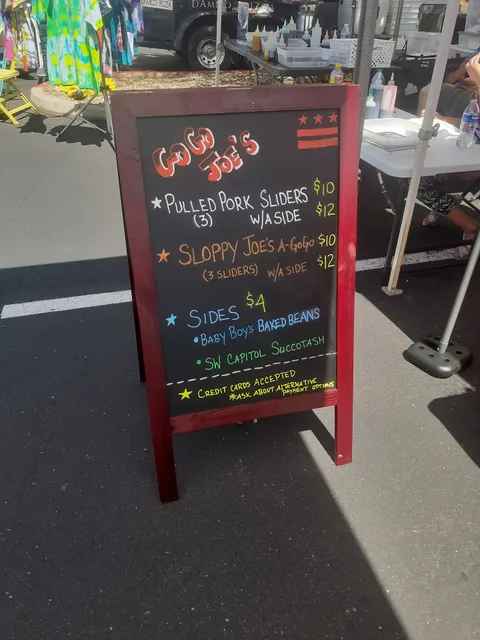 GoGo
Joe's
★ Pulled Pork Sliders $10
(3) w/a side $12
★ Sloppy Joe's A-GoGo $10
(3 sliders) w/a side $12
★ Sides $4
• Baby Boy's Baked Beans
• SW Capitol Succotash
★ Credit cards accepted
*Ask about alternative
payment options